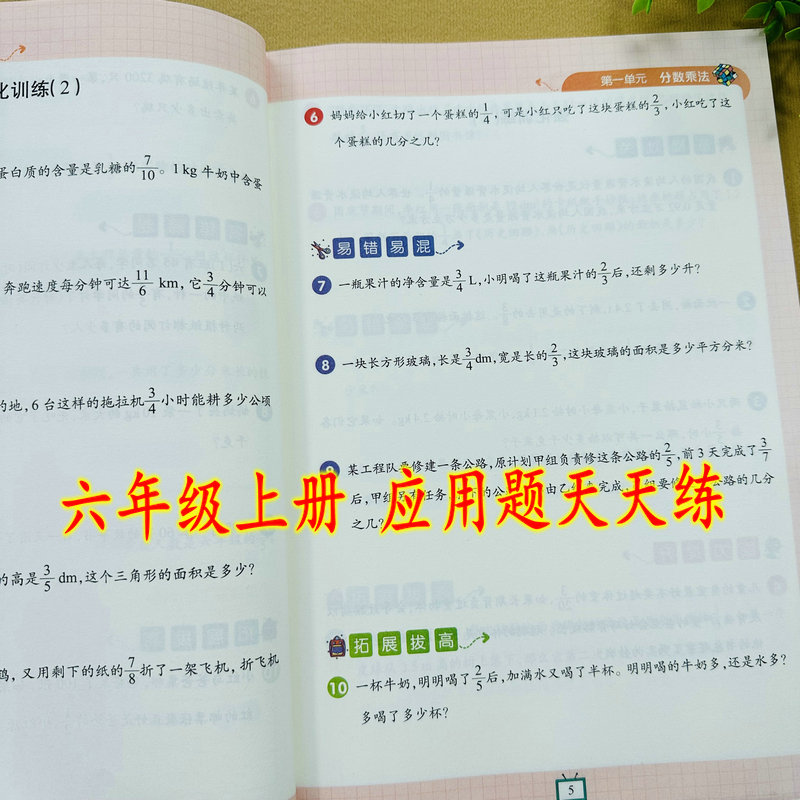 化训练(2)
蛋白质的含量是乳糖的7/10。1kg牛奶中含蛋
奔跑速度每分钟可达11/6 km,它3/4分钟可以
的地,6台这样的拖拉机3/4小时能耕多少公顷
的高是3/5 dm,这个三角形的面积是多少?
鸣,又用剩下的纸的7/8折了一架飞机,折飞机
第一单元 分数乘法
6 妈妈给小红切了一个蛋糕的1/4,可是小红只吃了这块蛋糕的2/3,小红吃了这
个蛋糕的几分之几?
易错易混
7 一瓶果汁的净含量是3/4 L,小明喝了这瓶果汁的2/3后,还剩多少升?
8 一块长方形玻璃,长是3/4dm,宽是长的2/3,这块玻璃的面积是多少平方分米?
9 某工程队要修建一条公路,原计划甲组负责修这条公路的2/5,前3天完成了3/7
后,甲组另有任务,
完成,
公路的几分
之几?
六年级上册 应用题天天练
拓展拔高
10 一杯牛奶,明明喝了2/5后,加满水又喝了半杯。明明喝的牛奶多,还是水多?
多喝了多少杯?
5